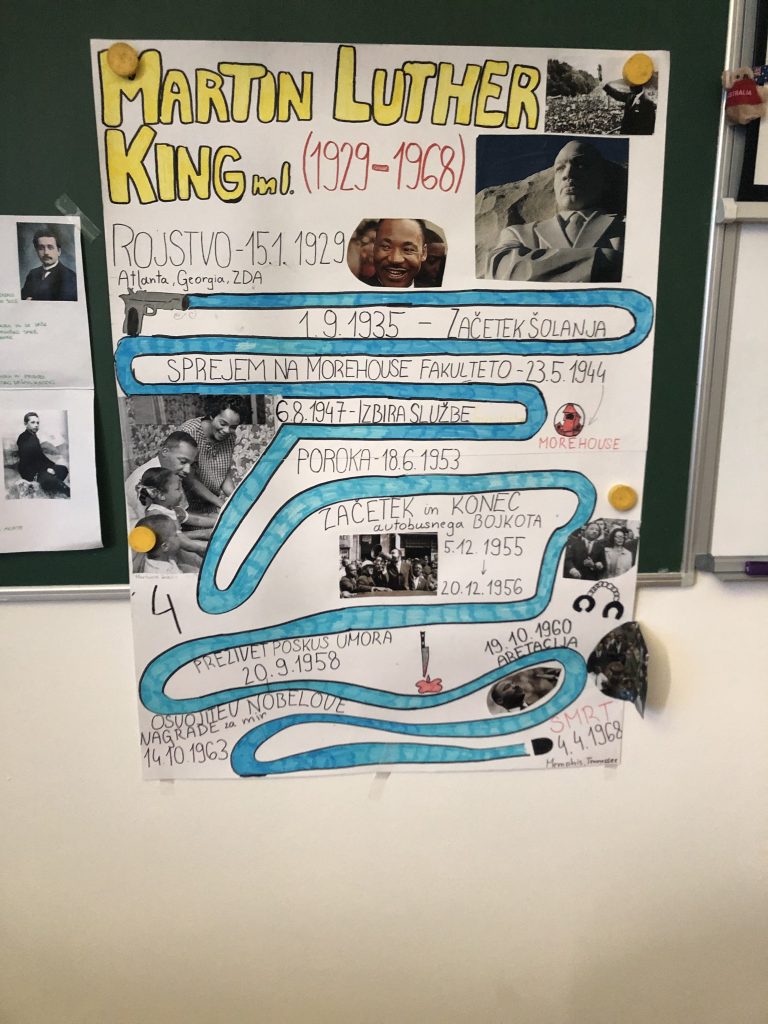 MARTIN LUTHER
KING ml. (1929-1968)
ROJSTVO-15.1. 1929
Atlanta, Georgia, ZDA
1.9.1935 - ZAČETEK ŠOLANJA
SPREJEM NA MOREHOUSE FAKULTETO - 23.5.1944
6.8.1947-IZBIRA SLUŽBE
MOREHOUSE
POROKA-18.6.1953
ZAČETEK in KONEC
avtobusnega BOJKOTA
5.12.1955
↓
20.12.1956
4
PREŽIVET POSKUS UMORA
20.9.1958
19.10.1960
ARETACIJA
OSVOJITEV NOBELOVE
NAGRADE za mir
14.10.1963
SMRT
4.4.1968
Memphis, Tennessee
AUSTRALIA